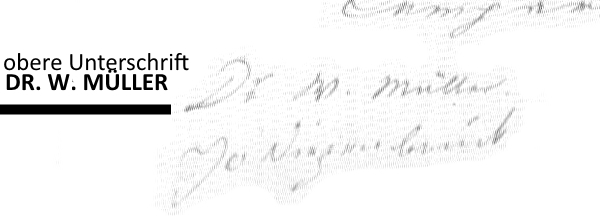 Compan
obere Unterschrift
DR. W. MÜLLER
Dr W. Müller.